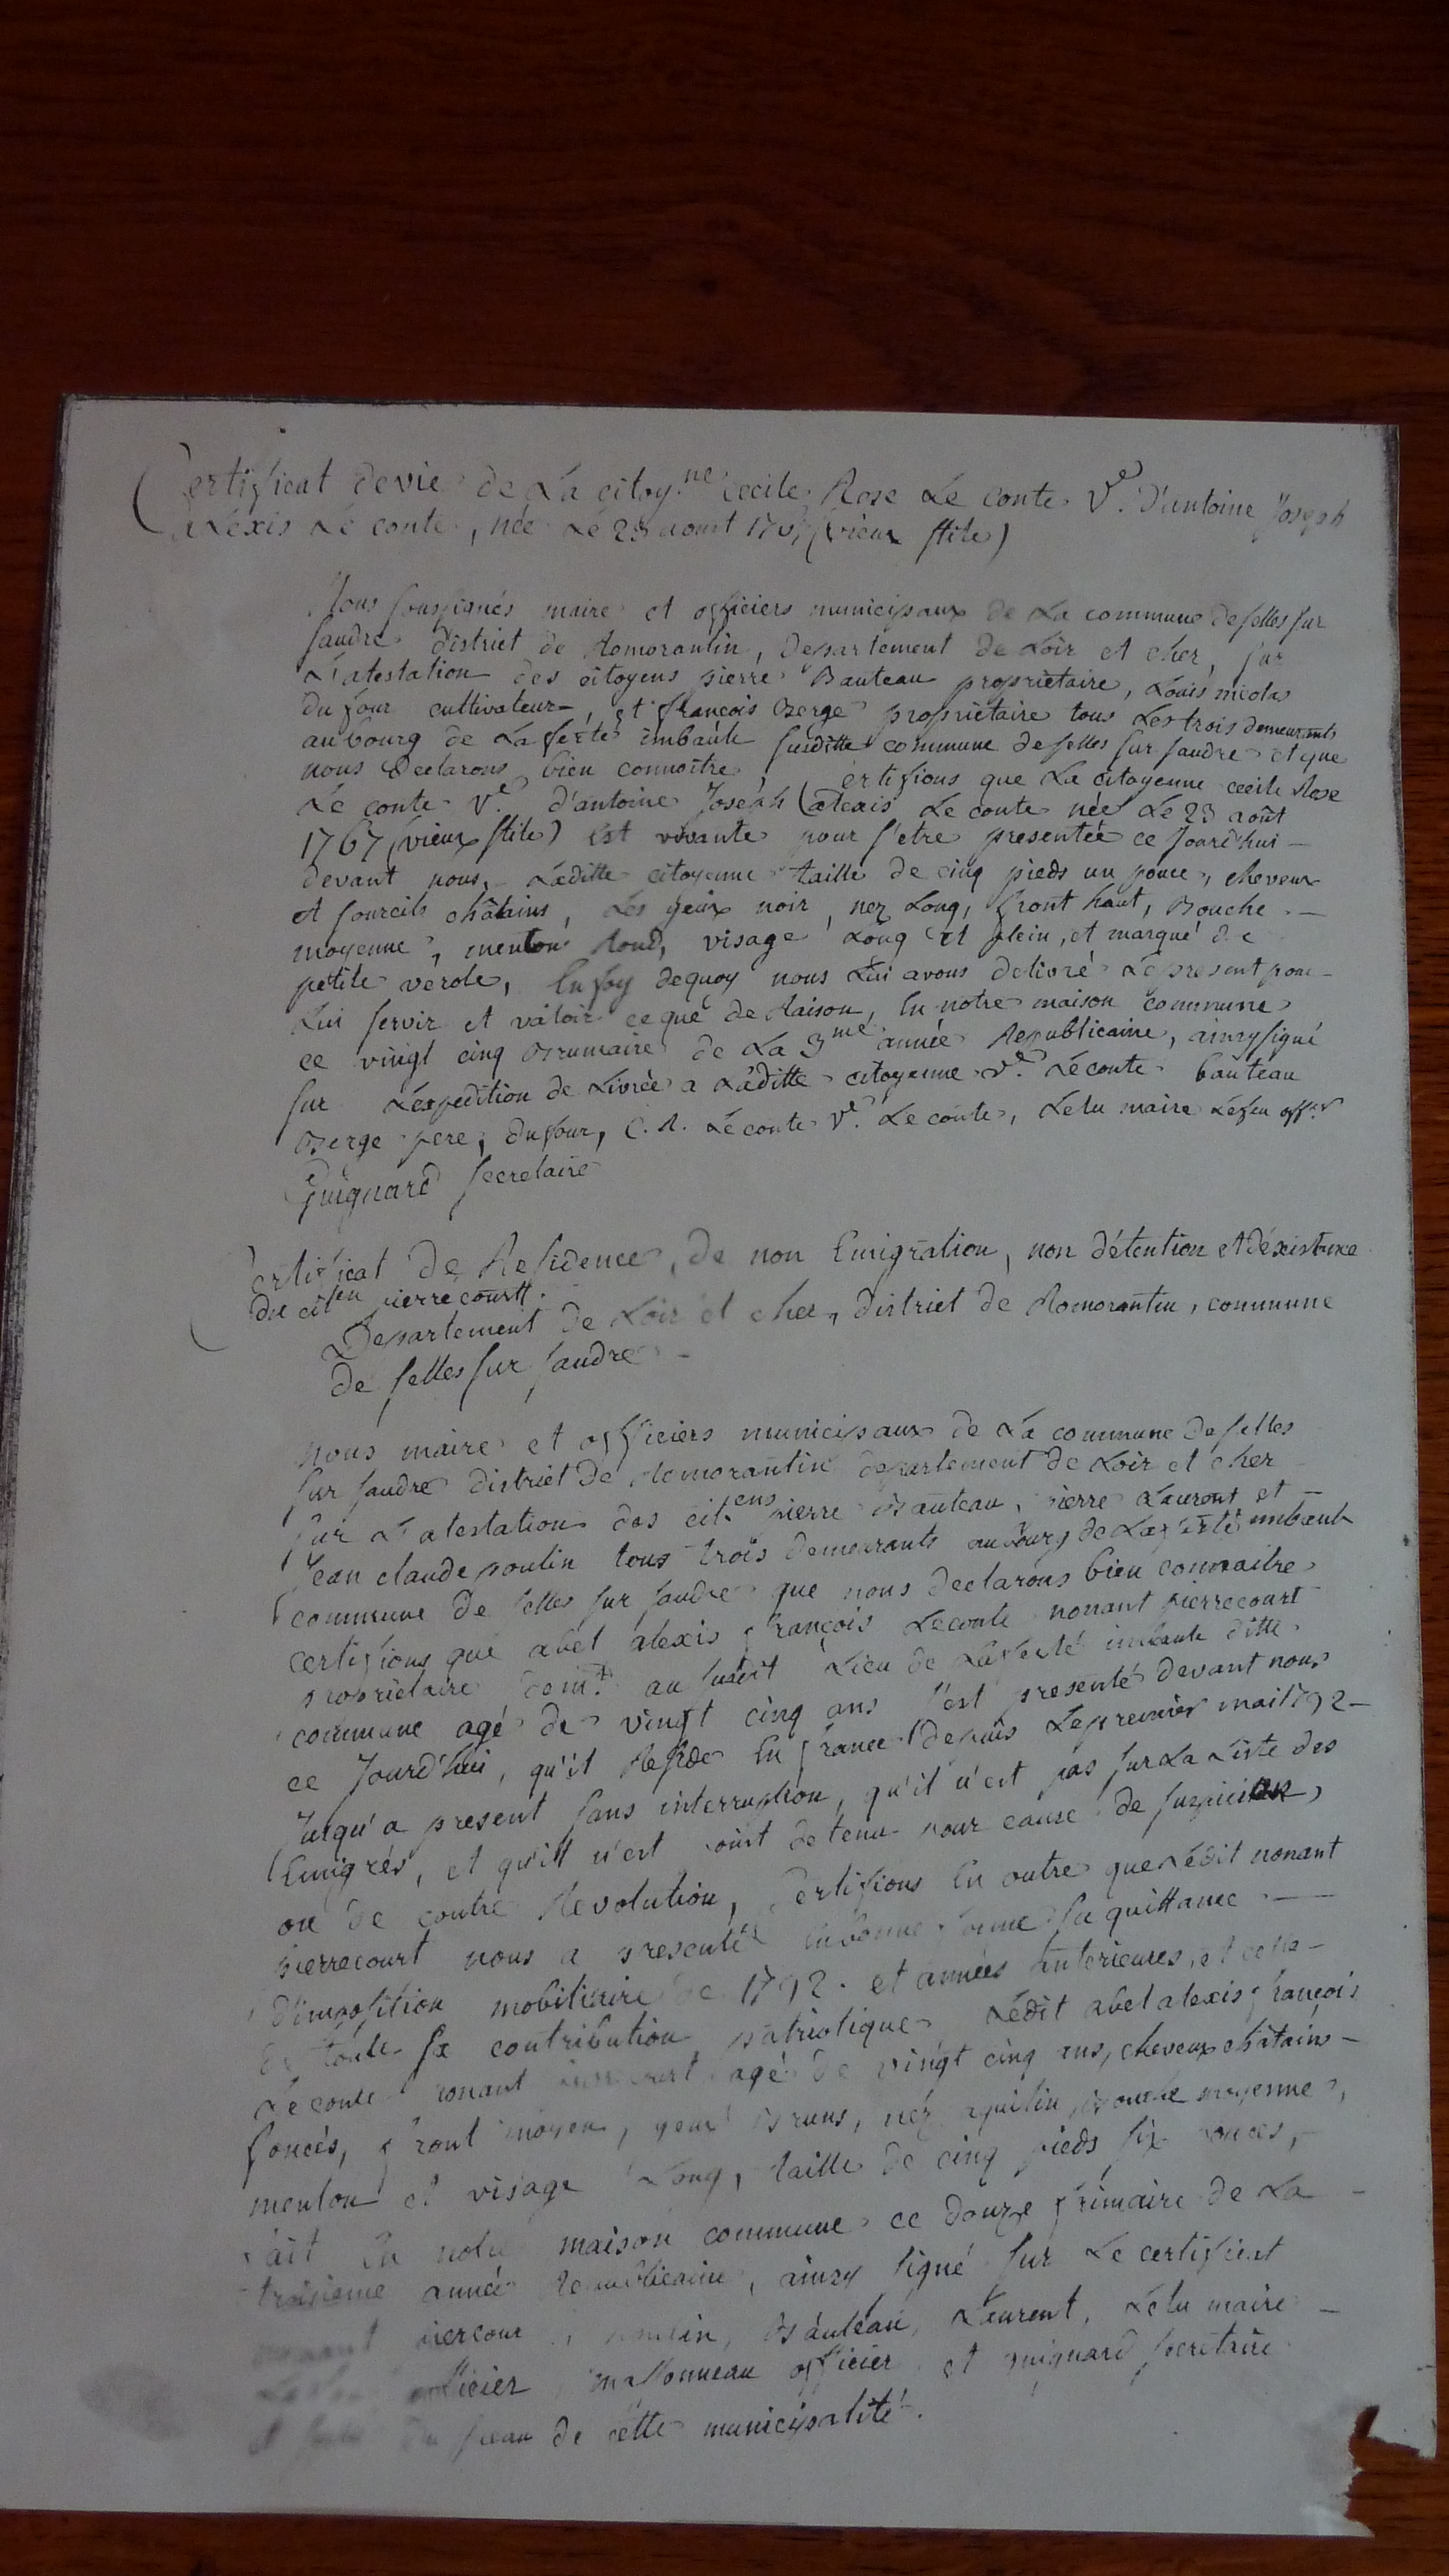 Certificat de vie de La citoy.ne Cecile Rose Le conte Ve. D'antoine Joseph
Alexis Le conte, née Le 23 aoust 1767 (vieux stile)
Nous soussignés maire et officiers municipaux de La commune de selles sur
saudre district de Romorantin, departement de Loir et cher, sur
L'atestation des citoyens pierre Bauteau propriétaire, Louis nicolas
Dufour cultivateur, et françois Berge propriétaire tous Les trois demeurants
au bourg de La ferté imbault susditte commune de selles sur saudre et que
nous Declarons bien connoitre, Certifions que La citoyenne cecile Rose
Le conte Ve. d'antoine Joseph alexis Le conte née Le 23 août
1767 (vieux stile) Est vivante pour s'etre presentée ce Jourd'hui
devant nous, Laditte citoyenne taille de cinq pieds un pouce, cheveux
et sourcils châtains, Les yeux noir, nez Long, front haut, Bouche
moyenne, menton Rond, visage Long et plein, et marqué de
petite verole, En foy dequoy nous Lui avons delivré Le present pour
Lui servir et valoir ce que de Raison, En notre maison commune
ce vingt cinq Brumaire de La 3me année Republicaine, ainsy signé
sur L'expedition de Livrée a Laditte citoyenne Ve. Le conte Bauteau
Berge pere, Dufour, C. R. Le conte Ve. Le conte, Lelu maire Lefeu offer
Guignard secretaire
Certificat De Residence, de non Emigration, non détention et dexistance
du citen pierrecourtt.
Departement de Loir et cher, district de Romorantin, commune
De selles sur saudre
Nous maire et officiers municipaux de La commune de selles
sur saudre district de Romorantin departement de Loir et cher
sur L'atestation des cit.ens pierre Bauteau, pierre Laurent et
Jean claude poulin tous trois demeurants au bourg de La ferté imbault
commune de selles sur saudre que nous declarons bien connaitre
certifions que abel alexis françois Leconte nonant pierrecourt
propriétaire demt. au susdit Lieu de La ferté imbault ditte
commune agé de vingt cinq ans s'est presenté devant nous
ce Jourd'hui, qu'il Reside En france depuis Le premier mai 1792
Jusqu'a present sans interruption, qu'il n'est pas sur La Liste des
Emigrés, et qu'ill n'est point detenu pour cause de suspicion,
ou de contre Revolution, Certifions En outre que Ledit nonant
pierrecourt nous a presenté En bonne forme sa quittance
D'imposition mobiliaire de 1792. et années Anterieures, et celle
De toute sa contribution patriotique Ledit abel alexis françois
Le conte nonant pierrecourt agé de vingt cinq ans, cheveux châtains
foncés, front moyen, yeux Bruns, néz aquilin, Bouche moyenne,
menton et visage Long, taille de cinq pieds six pouces,
fait En notre maison commune ce Douze frimaire de La
troisieme année Republicaine, ainsy signé sur Le certificat
nonant piercour, poulin, Bauteau, Laurent, Lelu maire
officier, massonneau officier et guignard secretaire
et du sceau de cette municipalité.